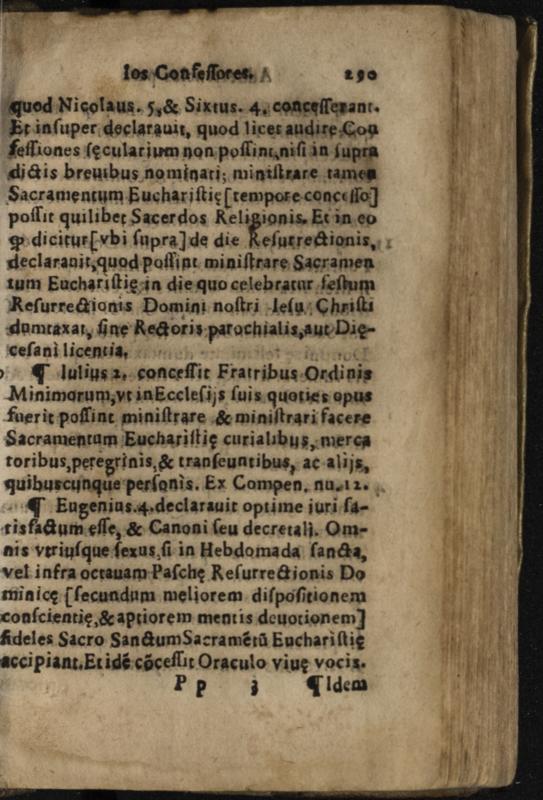 los Confeſſores. 290
quod Nicolaus. 5, & Sixtus. 4. conceſſerant.
Et inſuper declarauit, quod licet audire Con
feſſiones ſęcularium non poſſint, niſi in ſupra
dictis breuibus nominati; miniſtrare tamen
Sacramentum Euchariſtię [tempore conceſſo]
poſſit quilibet Sacerdos Religionis. Et in eo
ꝙ dicitur [vbi ſupra] de die Reſurrectionis,
declarauit, quod poſſint miniſtrare Sacramen
tum Euchariſtię in die quo celebratur feſtum
Reſurrectionis Domini noſtri Ieſu Chriſti
dumtaxat, ſine Rectoris parochialis, aut Dię-
ceſani licentia.
¶ Iulius 2. conceſſit Fratribus Ordinis
Minimorum, vt in Eccleſijs ſuis quoties opus
fuerit poſſint miniſtrare & miniſtrari facere
Sacramentum Euchariſtię curialibus, merca
toribus, peregrinis, & tranſeuntibus, ac alijs,
quibuſcunque perſonis. Ex Compen. nu. 12.
¶ Eugenius. 4. declarauit optime iuri ſa-
tisfactum eſſe, & Canoni ſeu decretali. Om-
nis vtriuſque ſexus, ſi in Hebdomada ſancta,
vel infra octauam Paſchę Reſurrectionis Do
minicę [ſecundum meliorem diſpoſitionem
conſcientię, & aptiorem mentis deuotionem]
fideles Sacro Sanctum Sacramētū Euchariſtię
accipiant. Et idē cōceſſit Oraculo viuę vocis.
P p 3 ¶ Idem